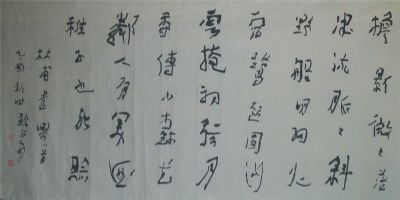 檐影微微落
津流脈脈斜
野船明細火
宿鷺起圓沙
雲掩初弦月
香傳小樹花
鄰人有美酒
稚子也能賒
杜甫遣一首
乙酉